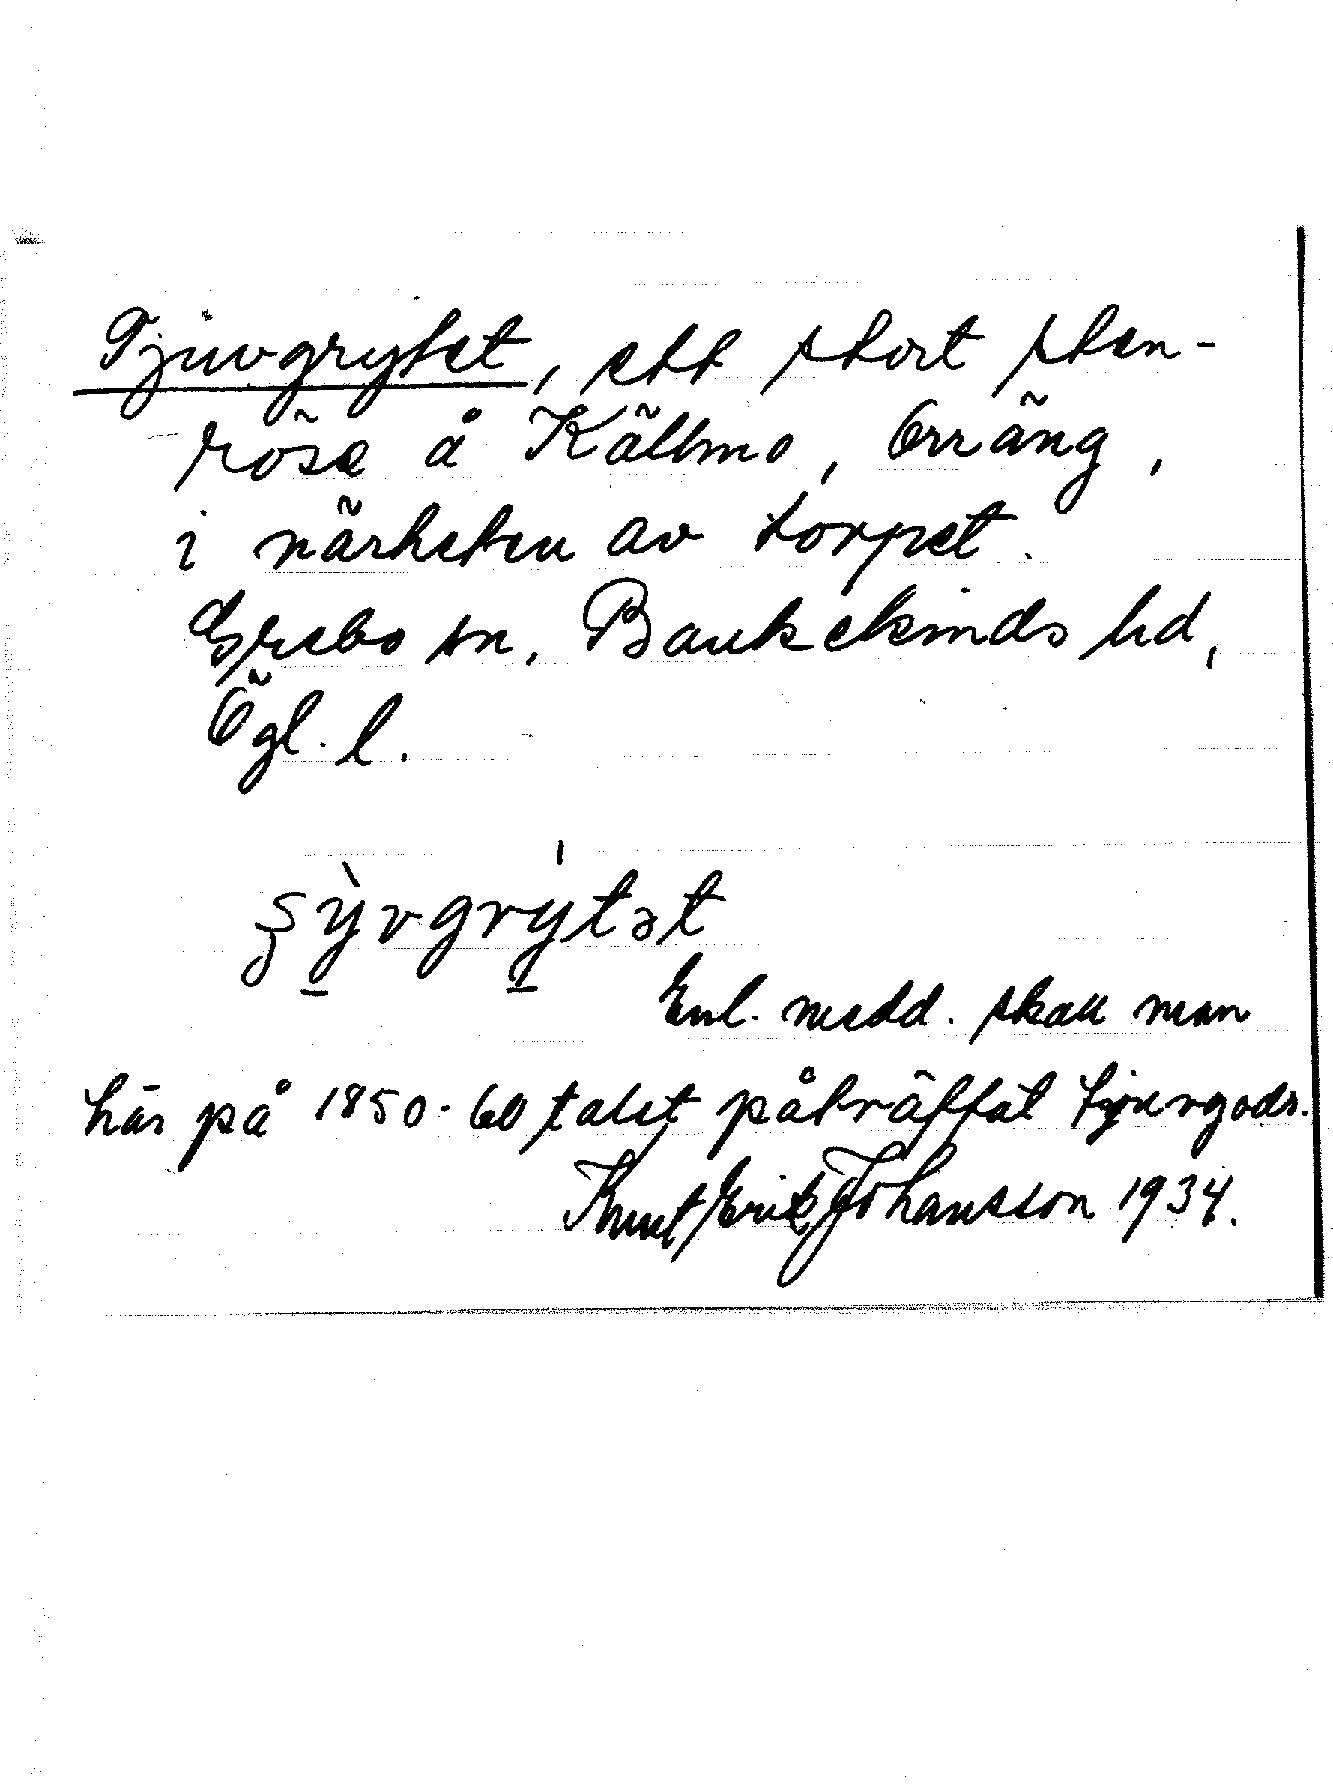 Tjuvgrytet, ett stort sten-
röse å Källmo, Orräng,
i närheten av torpet.
Grebo sn, Bankekinds hd,
Ögl. l.
Enl. medd. skall man
här på 1850-60 talet påträffat tjuvgods.
Knut Erik Johansson 1934.